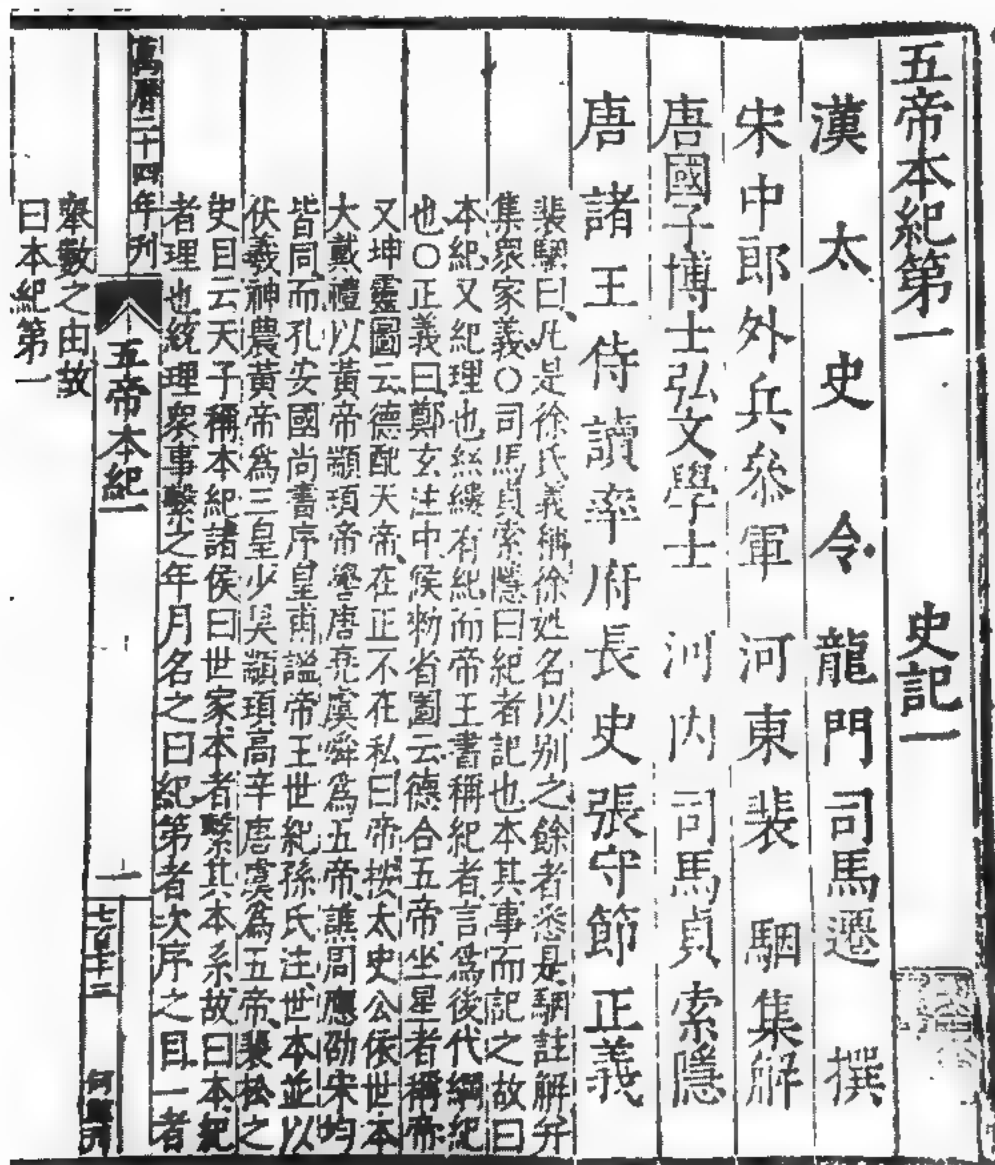 五帝本紀第一 史記一
漢太史令龍門司馬遷撰
宋中郎外兵參軍河東裴駰集解
唐國子博士弘文學士河內司馬貞索隱
唐諸王侍讀率府長史張守節正義
裴駰曰凡是徐氏義稱徐姓名以别之餘者悉是駰註解并
集衆家義○司馬貞索隱曰紀者記也本其事而記之故曰
本紀又紀理也絲縷有紀而帝王書稱紀者言爲後代綱紀
也○正義曰鄭玄注中候勑省圖云德合五帝坐星者稱帝
又坤靈圖云德配天帝在正不在私曰帝按太史公依世本
大戴禮以黃帝顓頊帝嚳唐堯虞舜爲五帝譙周應劭宋均
皆同而孔安國尚書序皇甫謐帝王世紀孫氏注世本並以
伏羲神農黃帝爲三皇少昊顓頊高辛唐虞爲五帝裴松之
史目云天子稱本紀諸侯曰世家本者繫其本系故曰本紀
者理也統理衆事繫之年月名之曰紀第者次序之目一者
萬曆二十四年刊 五帝本紀一 一
舉數之由故
曰本紀第一